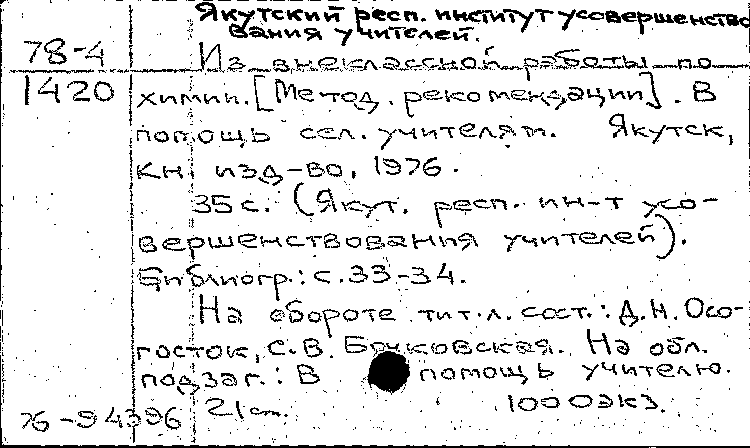 Якутский респ. институт усовершенство
вания учителей.
78-4 Из внеклассной работы по
1420 химии. [Метод. рекомендации]. В
помощь сел. учителям. Якутск,
Кн. изд-во, 1976.
35 с. (Якут. респ. ин-т усо-
вершенствования учителей).
Библиогр.: с. 33-34.
На обороте тит. л. сост.: Д.Н. Осо-
госток, С.В. Бочковская. На обл.
подзаг.: В помощь учителю.
76-94396 21 см. 1000 экз.